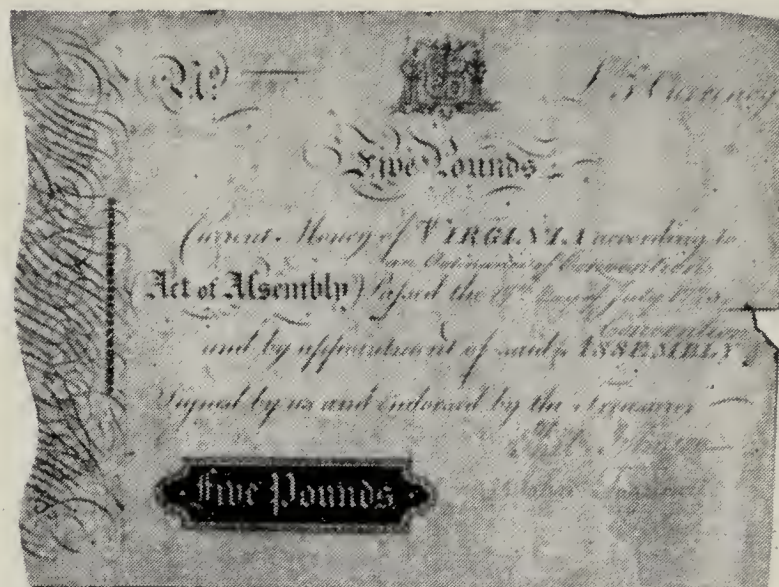 No
£5 Currency
Five Pounds
Current Money of VIRGINIA according to
an Ordinance of Convention
(Act of Assembly) Passed the 17th Day of July 1775
Convention
and by appointment of said ASSEMBLY
Signed by us and endorsed by the Treasurer
Five Pounds